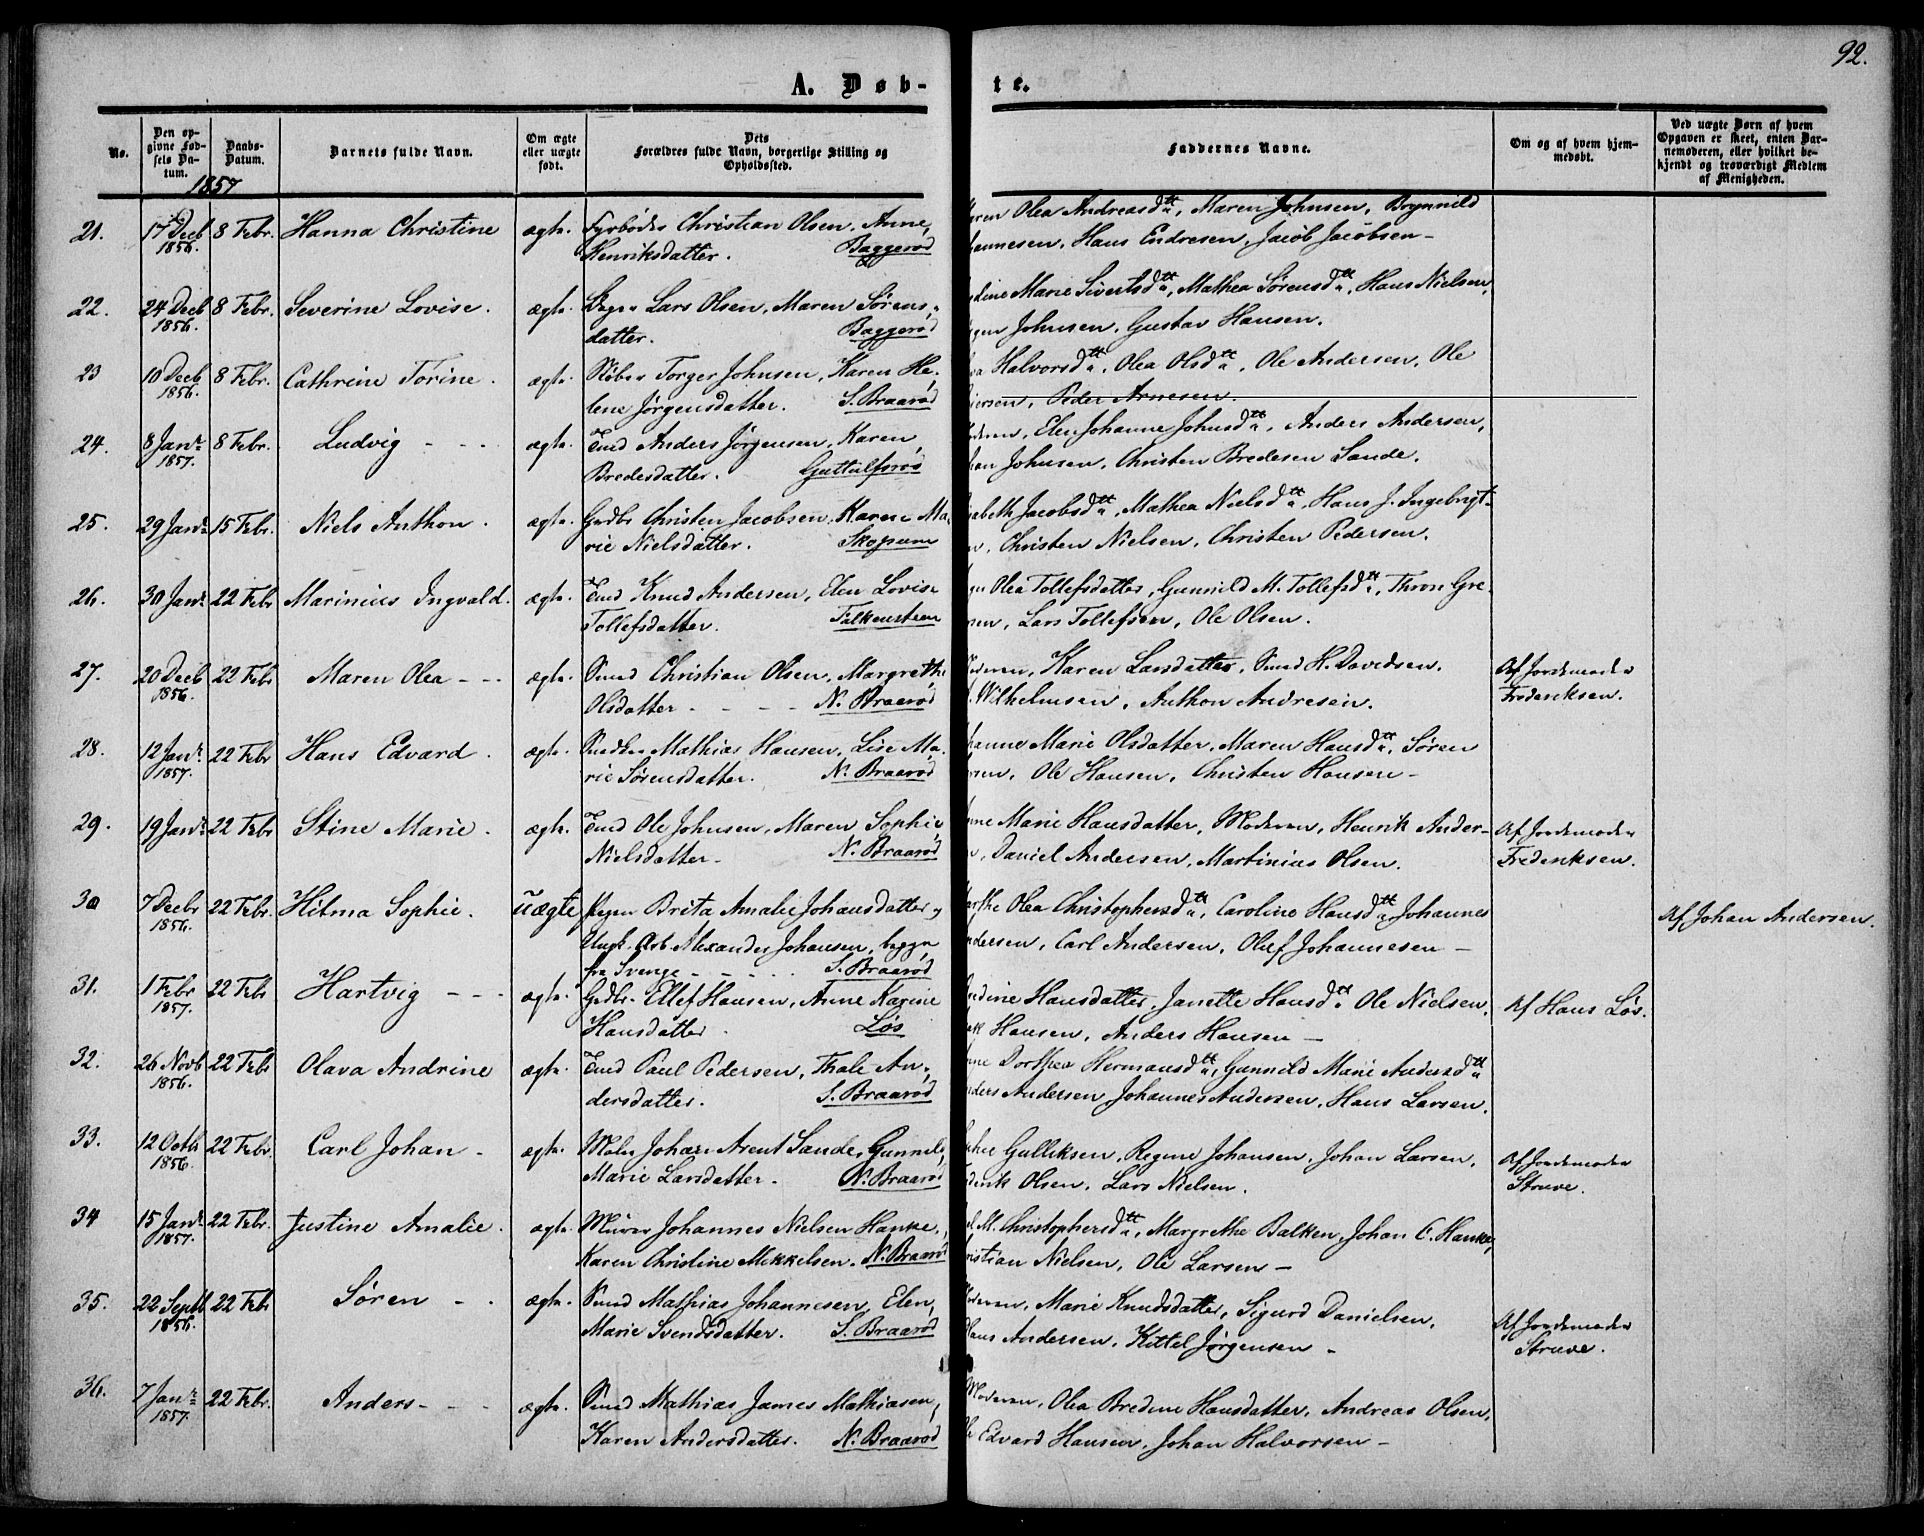 92.
A. Døb-
te.
No.
Den op-
givne Fød-
sels Da-
tum.
Daabs-
Datum.
Barnets fulde Navn.
Om ægte
eller uægte
født.
Dets
Forældres fulde Navn, borgerlige Stilling og
Opholdssted.
Faddernes Navne.
Om og af hvem hjem-
medøbt.
Ved uægte Børn af hvem
Opgaven er skeet, enten Bar-
nemoderen, eller hvilket be-
kjendt og troværdigt Medlem
af Menigheden.
1857
21. 17 Decb 8 Febr. Hanna Christine ægte. Fyrbøder Christian Olsen, Anne
1856. Henriksdatter. Baggerød
Olea Andreasdtt, Maren Johnsen, Brynnild
Hans Endresen, Jacob Jacobsen –
22. 24 Decb 8 Febr. Severine Lovise. ægte. Lars Olsen, Maren Sørens-
1856. datter. Baggerød
Marie Sivertsdtt, Mathea Sørensdtt, Hans Nielsen,
Johnsen, Gustav Hansen.
23 10 Decb 8 Febr. Cathrine Torine. ægte. Torger Johnsen, Karen He-
1856. lene Jørgensdatter. S. Braarød
Halvorsdtt, Olea Olsdtt, Ole Andersen, Ole
Peder Arnesen.
24. 8 Janr 8 Febr. Ludvig - - - ægte. Tmd Anders Jørgensen, Karen
1857. Bredesdatter. Guttulfsrød
Elen Johanne Johnsdtt, Anders Andersen,
Johnsen, Christen Bredesen Sande.
25. 29 Janr 15 Febr. Niels Anthon. ægte. Grdbr Christen Jacobsen, Karen Ma-
rie Nielsdatter. Skopum
Jacobsdtt, Mathea Nielsdtt, Hans J. Ingebrigt-
Christen Nielsen, Christen Pedersen.
26. 30 Janr 22 Febr Marinius Ingvald. ægte. Tmd Knud Andersen, Elen Lovise
Tollefsdatter. Falkensteen
Olea Tollefsdatter, Gunnild M. Tollefsdtt, Thron Gre-
Lars Tollefsen, Ole Olsen.
27. 20 Decb 22 Febr Maren Olea - - - ægte. Smd Christian Olsen, Margrethe
1856. Olsdatter - - - - N. Braarød
Karen Larsdatter, Smd H. Davidsen.
Wilhelmsen, Anthon Andresen.
Af Jordemoder
Frederiksen.
28. 12 Janr 22 Febr Hans Edvard. ægte. Mathias Hansen, Lise Ma-
1857. rie Sørensdatter. N. Braarød
Marie Olsdatter, Maren Hansdtt, Søren
Ole Hansen, Christen Hansen –
29. 19 Janr 22 Febr Stine Marie. ægte. Tmd Ole Johnsen, Maren Sophie
Nielsdatter – N. Braarød
Marie Hansdatter, Moderen, Henrik Ander-
Daniel Andersen, Martinius Olsen.
Af Jordemoder
Frederiksen.
30 7 Decbr 22 Febr. Hilma Sophie. uægte Pigen Brita Amalie Johansdatter og
1856. Ungk. Arb. Alexander Johansen, begge
fra Sverige - - - - S. Braarød
Olea Christophersdtt, Caroline Hansdtt, Johannes
Carl Andersen, Oluf Johannesen –
Af Johan Andersen.
31. 1 Febr 22 Febr Hartvig - - - ægte. Grdbr. Ellef Hansen, Anne Karine
1857. Hansdatter. Løs
Hansdatter, Janette Hansdtt, Ole Nielsen,
Hansen, Anders Hansen –
Af Hans Løs.
32. 26 Novb 22 Febr Olava Andrine ægte. Tmd Paul Pedersen, Thale An-
1856. dersdatter. S. Braarød
Dorthea Hermansdtt, Gunnild Marie Andersdtt
Andersen, Johannes Andersen, Hans Larsen.
33. 12 Octb 22 Febr. Carl Johan - ægte. Johan Arent Sande, Gunnele
1856. Marie Larsdatter - N. Braarød
Gulliksen, Regine Johansen, Johan Larsen,
Olsen, Lars Nielsen.
Af Jordemoder
Struve.
34 15 Janr 22 Febr. Justine Amalie. ægte. Murer Johannes Nielsen Hanke,
1857. Karen Christine Mikkelsen. N. Braarød
M. Christophersdtt, Margrethe Balken, Johan C. Hanke,
Nielsen, Ole Larsen –
35. 22 Septb 22 Febr Søren - - ægte. Smd Mathias Johannesen, Elen
1856. Marie Svendsdatter. S. Braarød
Moderen, Marie Knudsdatter, Sigurd Danielsen,
Hans Andersen, Kittel Jørgensen –
Af Jordemoder
Struve.
36. 7 Janr 22 Febr. Anders - - - ægte. Smd Mathias James Mathiasen,
1857. Karen Andersdatter. N. Braarød
Moderen, Olea Bredine Hansdatter, Andreas Olsen,
Edvard Hansen, Johan Halvorsen –